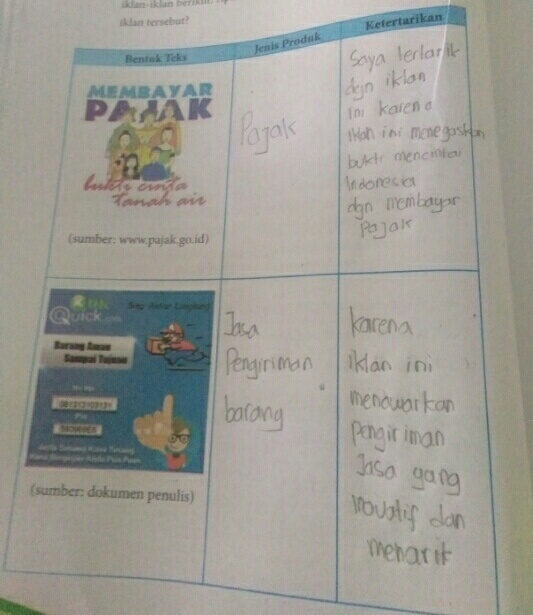 iklan-iklan berikut
iklan tersebut?
Bentuk Teks
Jenis Produk
Ketertarikan
MEMBAYAR
PAJAK
bukti cinta
tanah air
(sumber: www.pajak.go.id)
Pajak
Saya tertarik
dgn iklan
ini karena
iklan ini menegaskan
bukti mencintai
Indonesia
dgn membayar
Pajak
Quick.com
Siap Antar Langsung
Barang Aman
Sampai Tujuan
(sumber: dokumen penulis)
Jasa
Pengiriman
barang
karena
iklan ini
menawarkan
pengiriman
Jasa yang
inovatif dan
menarik